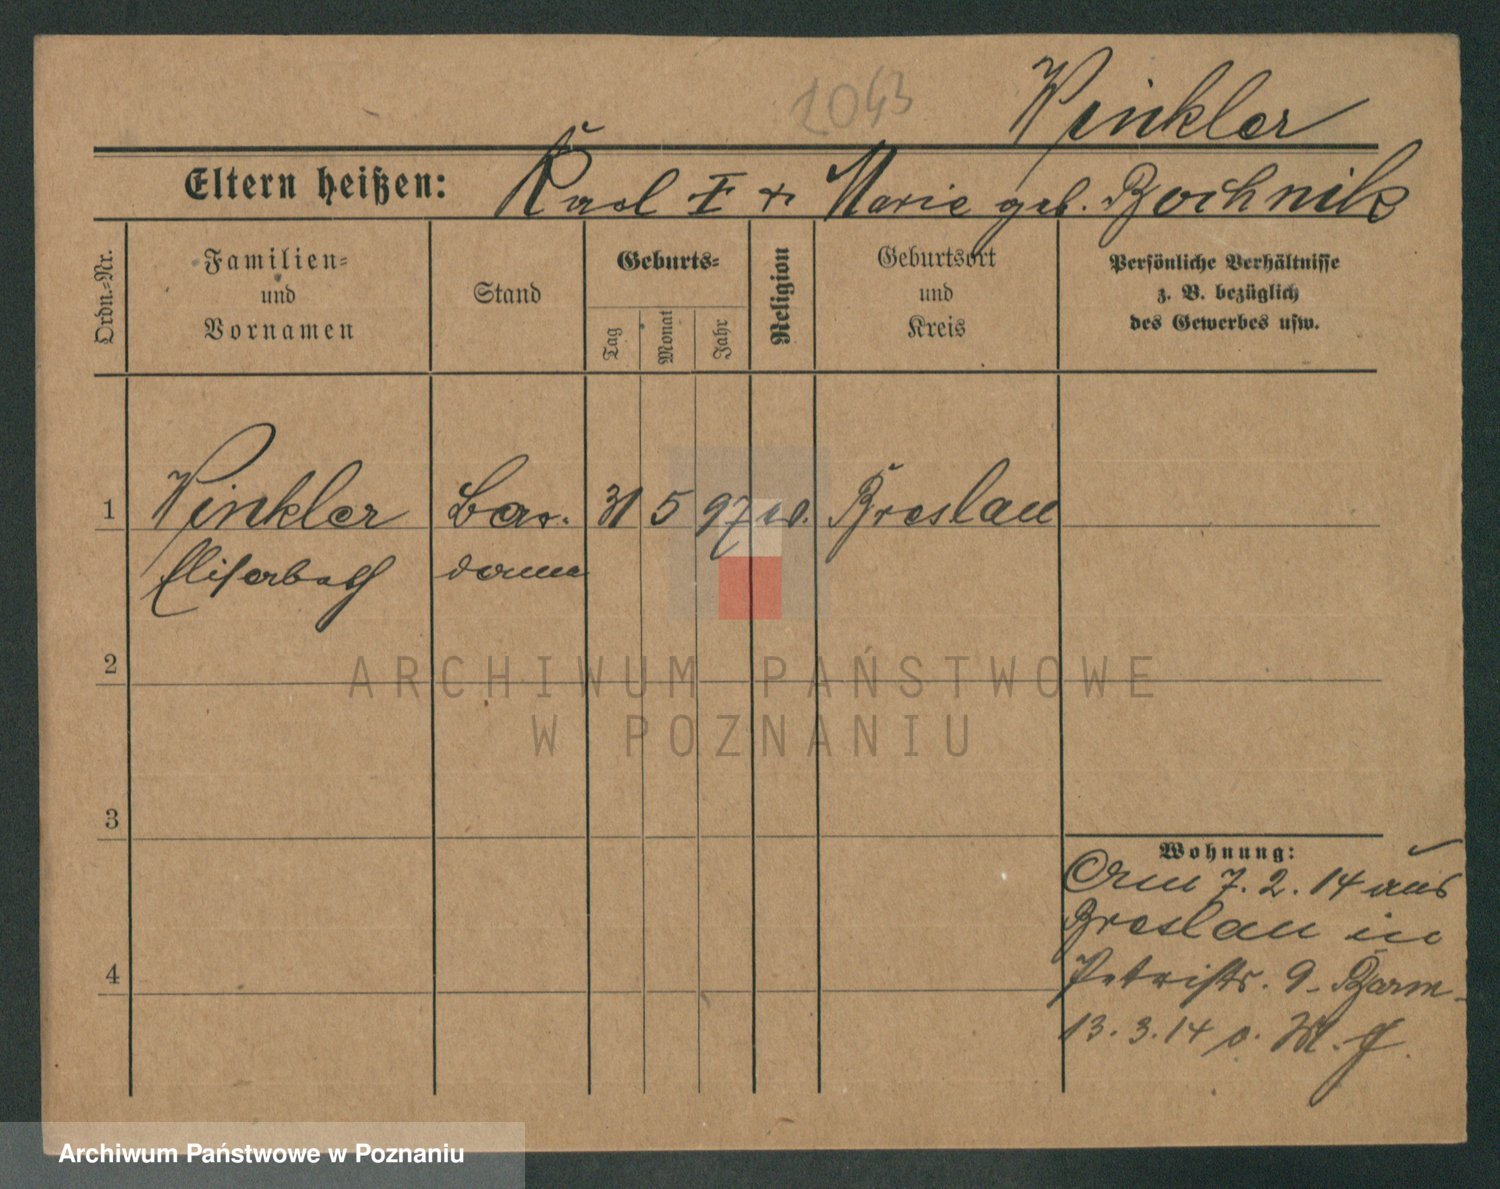 2043
Winkler
Eltern heißen: Karl I + Marie geb. Bochnik
Ordn.=Nr.
Familien=
und
Vornamen
Stand
Geburts=
Tag
Monat
Jahr
Religion
Geburtsort
und
Kreis
Persönliche Verhältnisse
z. B. bezüglich
des Gewerbes usw.
1 Winkler Bar- 31 5 97 Breslau
Elisabeth dame
2
3
4
Wohnung:
Am 7.2.14 aus
Breslau in
Petristr. 9
13.3.14
ARCHIWUM PAŃSTWOWE
W POZNANIU
Archiwum Państwowe w Poznaniu